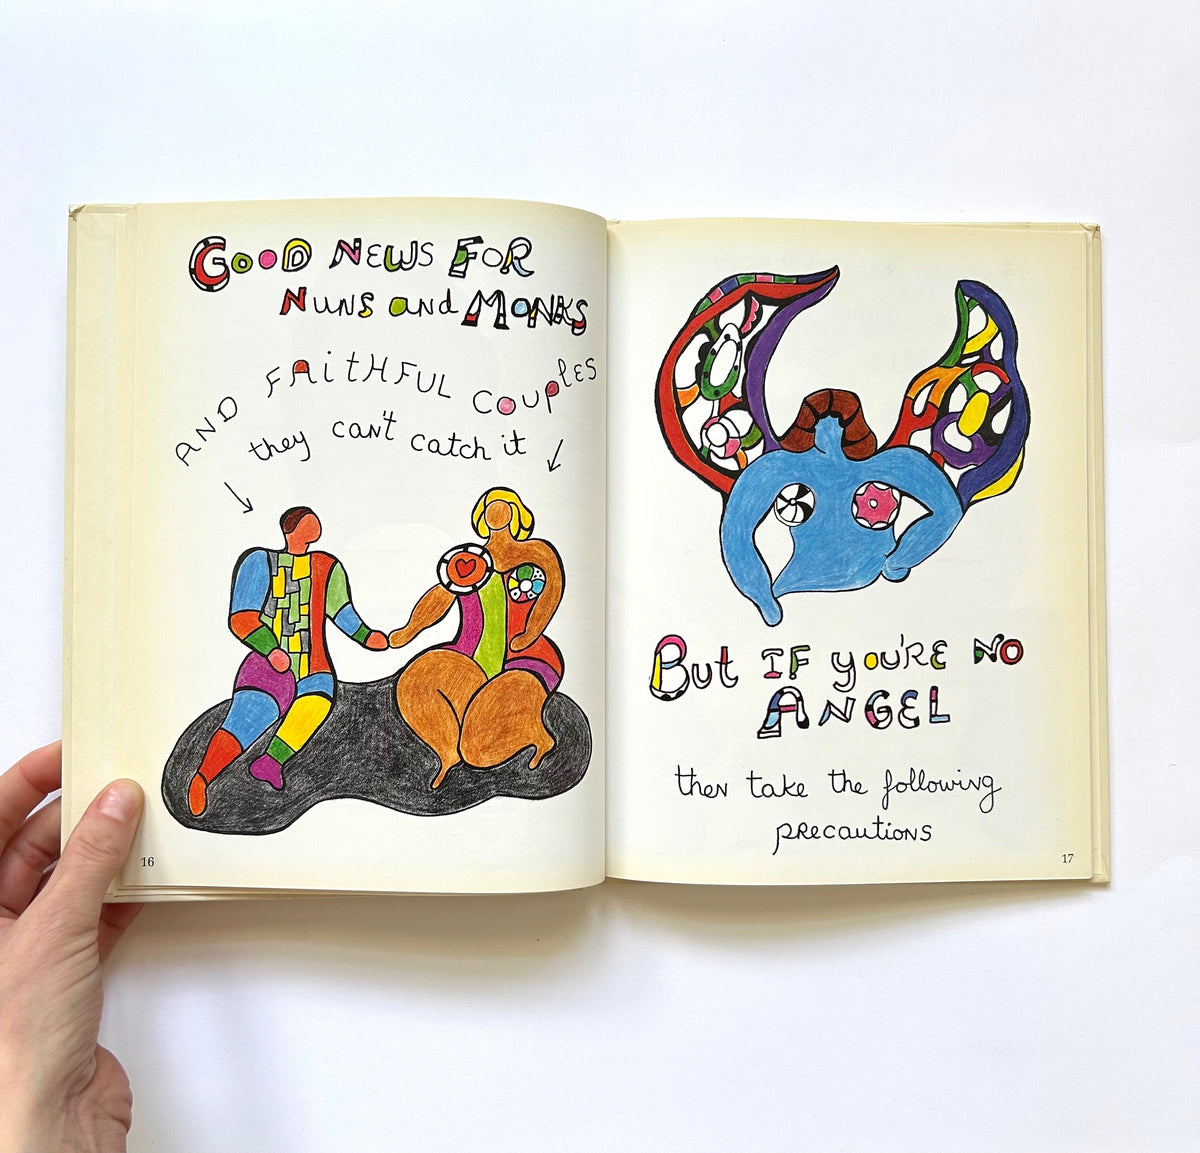 GOOD NEWS FOR
NUNS and MONKS
AND FAiTHFUL COUPlES
they can't catch it
16
BUt IF yOU'RE NO
ANGEL
then take the following
pRecautions
17